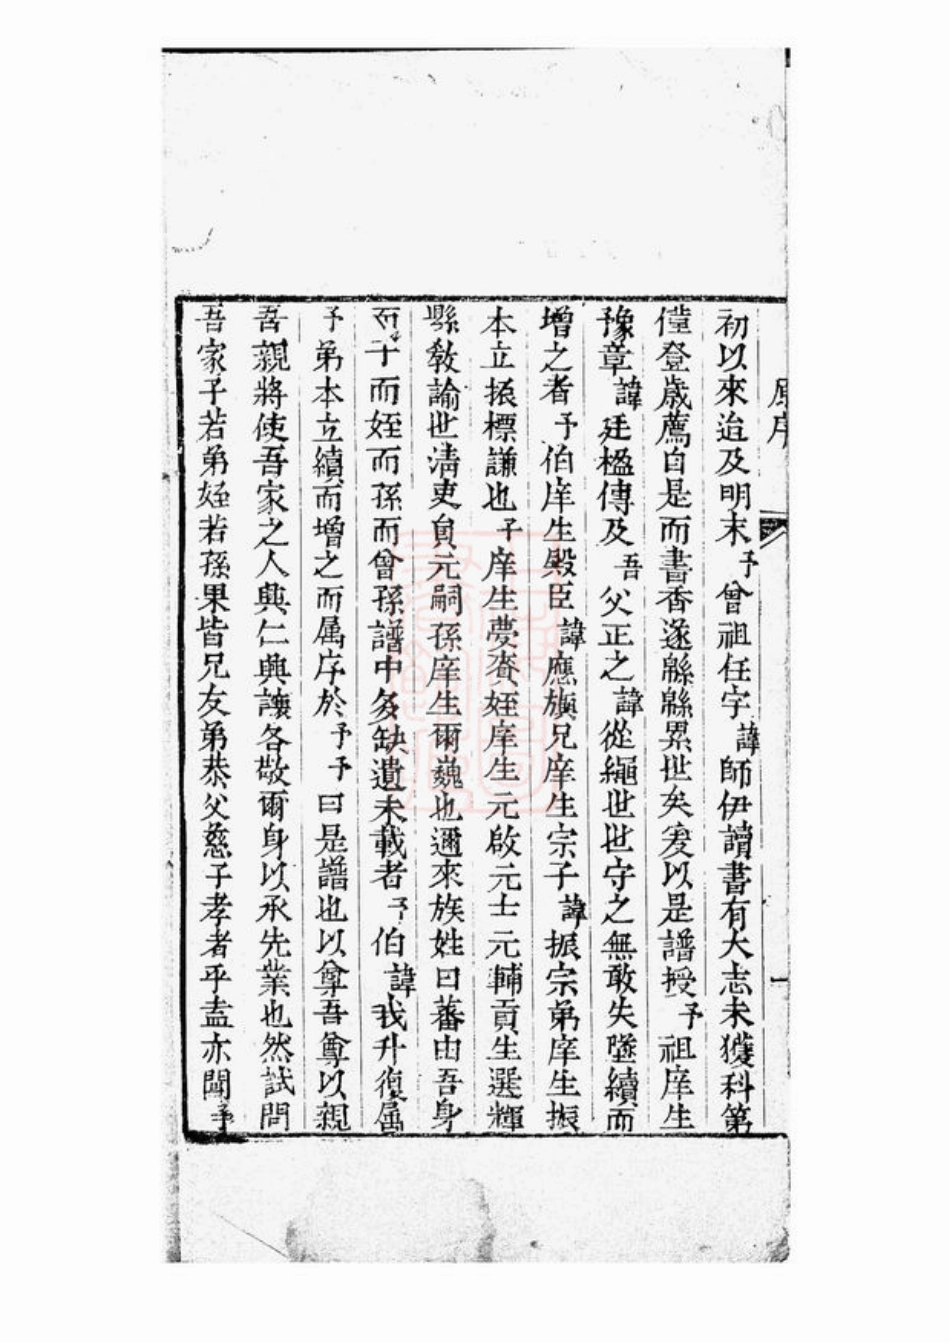 原序
一
初以來迨及明末予曾祖任字諱師伊讀書有大志未獲科第
僅登歲薦自是而書香遂緜緜累世矣爰以是譜授予祖庠生
豫章諱廷楹傳及吾父正之諱從繩世世守之無敢失墜續而
增之者予伯庠生殿臣諱應旟兄庠生宗子諱振宗弟庠生振
本立振標謙也予庠生夢賚姪庠生元啟元士元輔貢生選輝
縣教諭世清吏員元嗣孫庠生爾巍也邇來族姓曰蕃由吾身
而子而姪而孫而曾孫譜中多缺遺未載者予伯諱我升復属
予弟本立續而增之而属序於予予曰是譜也以尊吾尊以親
吾親將使吾家之人興仁興讓各敬爾身以承先業也然試問
吾家子若弟姪若孫果皆兄友弟恭父慈子孝者乎盍亦聞予